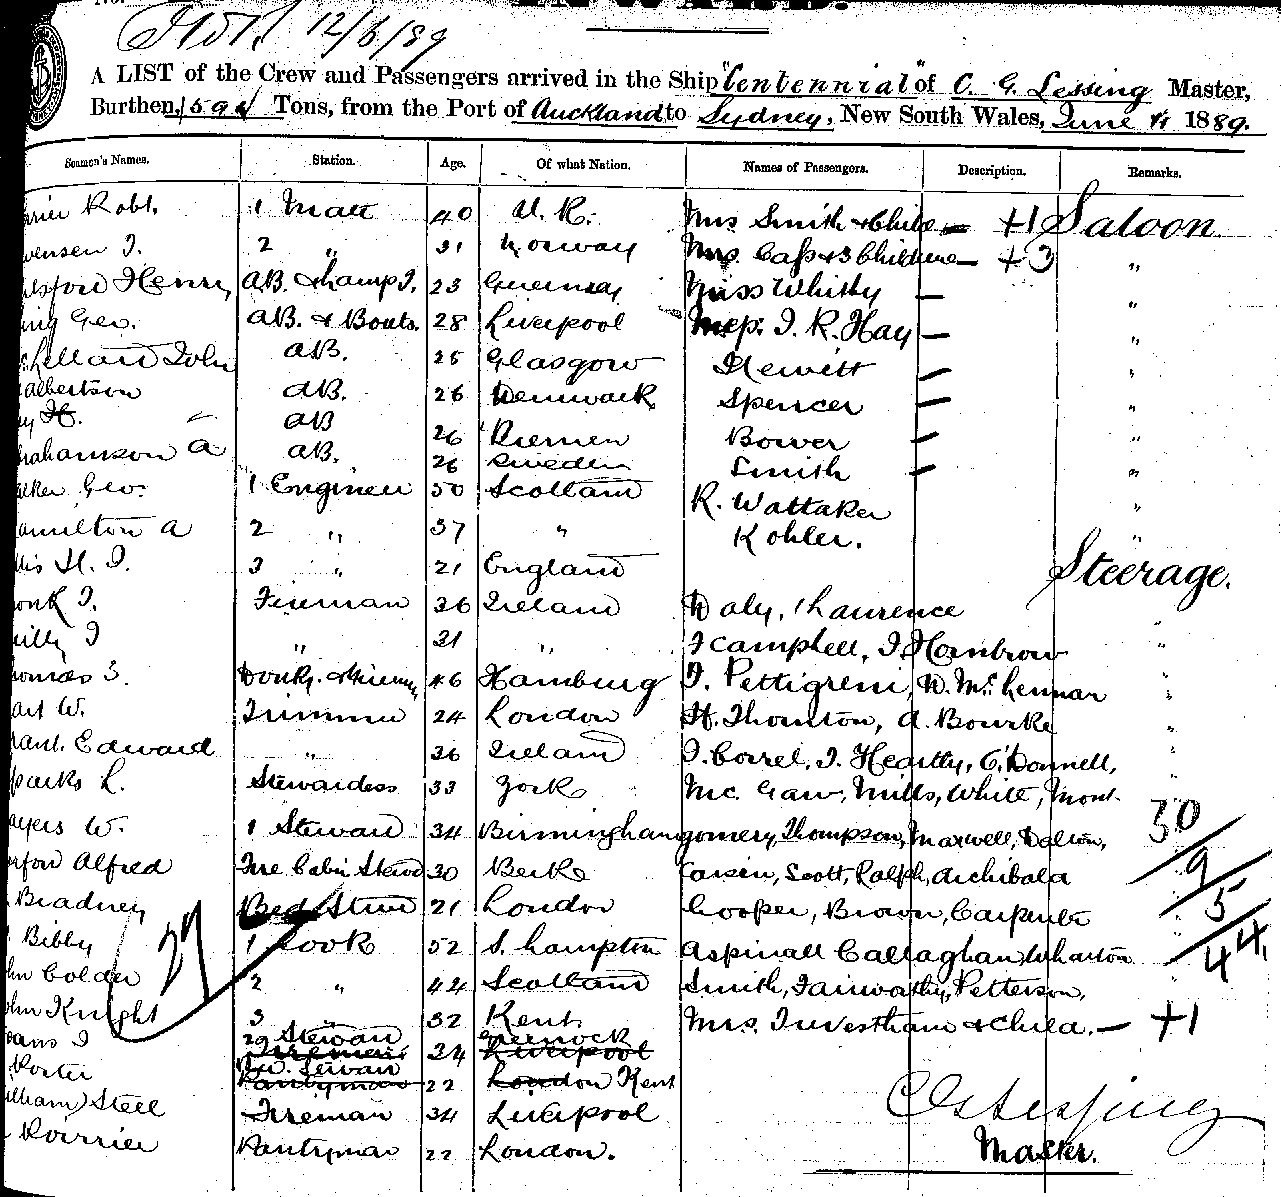 12/6/89
A LIST of the Crew and Passengers arrived in the Ship "Centennial" of C. G. Lessing Master,
Burthen, Tons, from the Port of Auckland to Sydney, New South Wales, June 1889.
Seamen's Names. Station. Age. Of what Nation. Names of Passengers. Description. Remarks.
Robt. 1 Mate 40 U.K. Mrs Smith & Child — +1 Saloon
2 " 31 Norway Mrs. Cass & 3 Children — +3 "
Henry AB. & Lamp T. 23 Guernsey Miss Whitby — "
Geo. AB. & Boats. 28 Liverpool J. R. Hay — "
John AB. 25 Glasgow Hewitt — "
albertson AB. 26 Denmark Spencer — "
H. AB 26 Bremen Bower — "
rahamson A AB. 26 Sweden Smith — "
Geo. 1 Engineer 50 Scotland R. Wattaker "
amilton A 2 " 37 " Kohler. "
H. J. 3 " 21 England Steerage.
Fireman 36 Ireland Daly, Laurence
" 31 " J Campbell, J Hambrow "
homas S. Donky. & Fireman 46 Hamburg J. Pettigrew, D. McLennan "
W. Trimmer 24 London H. Thornton, A. Bourke "
rant. Edward " 36 Ireland J. Correl, J. Heartly, O'Donnell, "
parks L. Stewardess 33 York Mc. Gaw, Mills, White, Mont- 30
ayers W. 1 Steward 34 Birmingham gomery, Thompson, Maxwell, Dalton,
Alfred Fore Cabin Stewd 30 Berks Larsen, Scott, Ralph, Archibald 9
Bradney Bed Stewd 21 London Cooper, Brown, Carpenter 5
Bibby 1 Cook 52 S. hampton Aspinall Callaghan, Wharton 44
27
hn Colder 2 " 44 Scotland Smith, Fairworthy, Petterson,
ohn Knight 3 " 32 Kent Mrs. Trevetham & Child. — +1
vans J 2nd Steward Firemans 34 Greenock Liverpool
Porter Steward Pantryman 22 London Kent
illiam Steel Fireman 34 Liverpool
Poirrier Pantryman 22 London.
C G Lessing
Master.